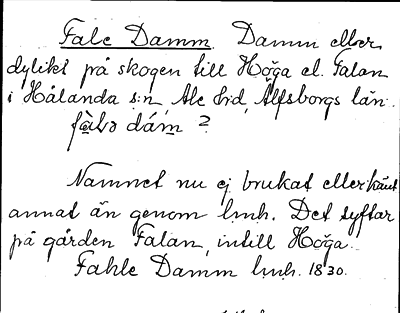 Fale Damm Damm eller
dylikt på skogen till Höga el. Falan
i Hålanda s:n, Ale hd, Älfsborgs län.
fà̱lɘ dám̱ ?
Namnet nu ej brukat eller känt
annat än genom lmh. Det syftar
på gården Falan, intill Höga.
Fahle Damm lmh. 1830.